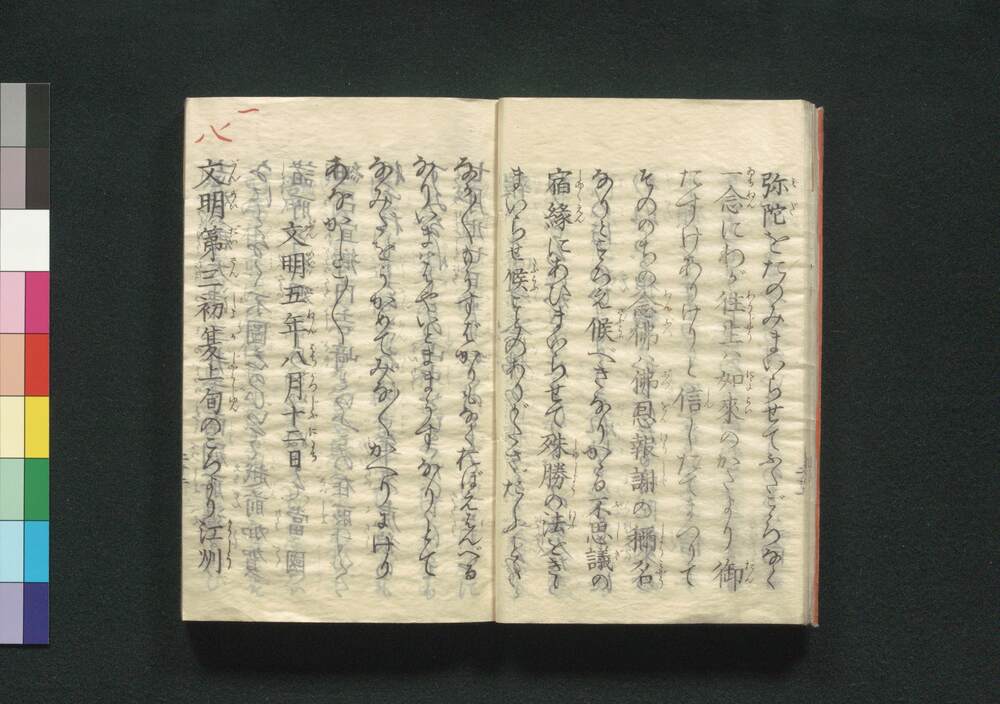 弥陀をたのみまいらせてふたごゝろなく
一念にわが往生は如來のかたより御
たすけありけりと信じたてまつりて
そのゝちの念佛は佛恩報謝の稱名
なりとこゝろえ候べきなりかゝる不思議の
宿縁にあひまいらせて殊勝の法をきゝ
まいらせ候ことのありがたさたふとさ
なか〳〵まうすばかりもなくおぼえはんべる
なりいまははやいとままうすなりとて
なみだをうかめてみな〳〵かへりにけり
あなかしこ〳〵
文明五年八月十二日
文明第三初夏上旬のころより江州
一
八